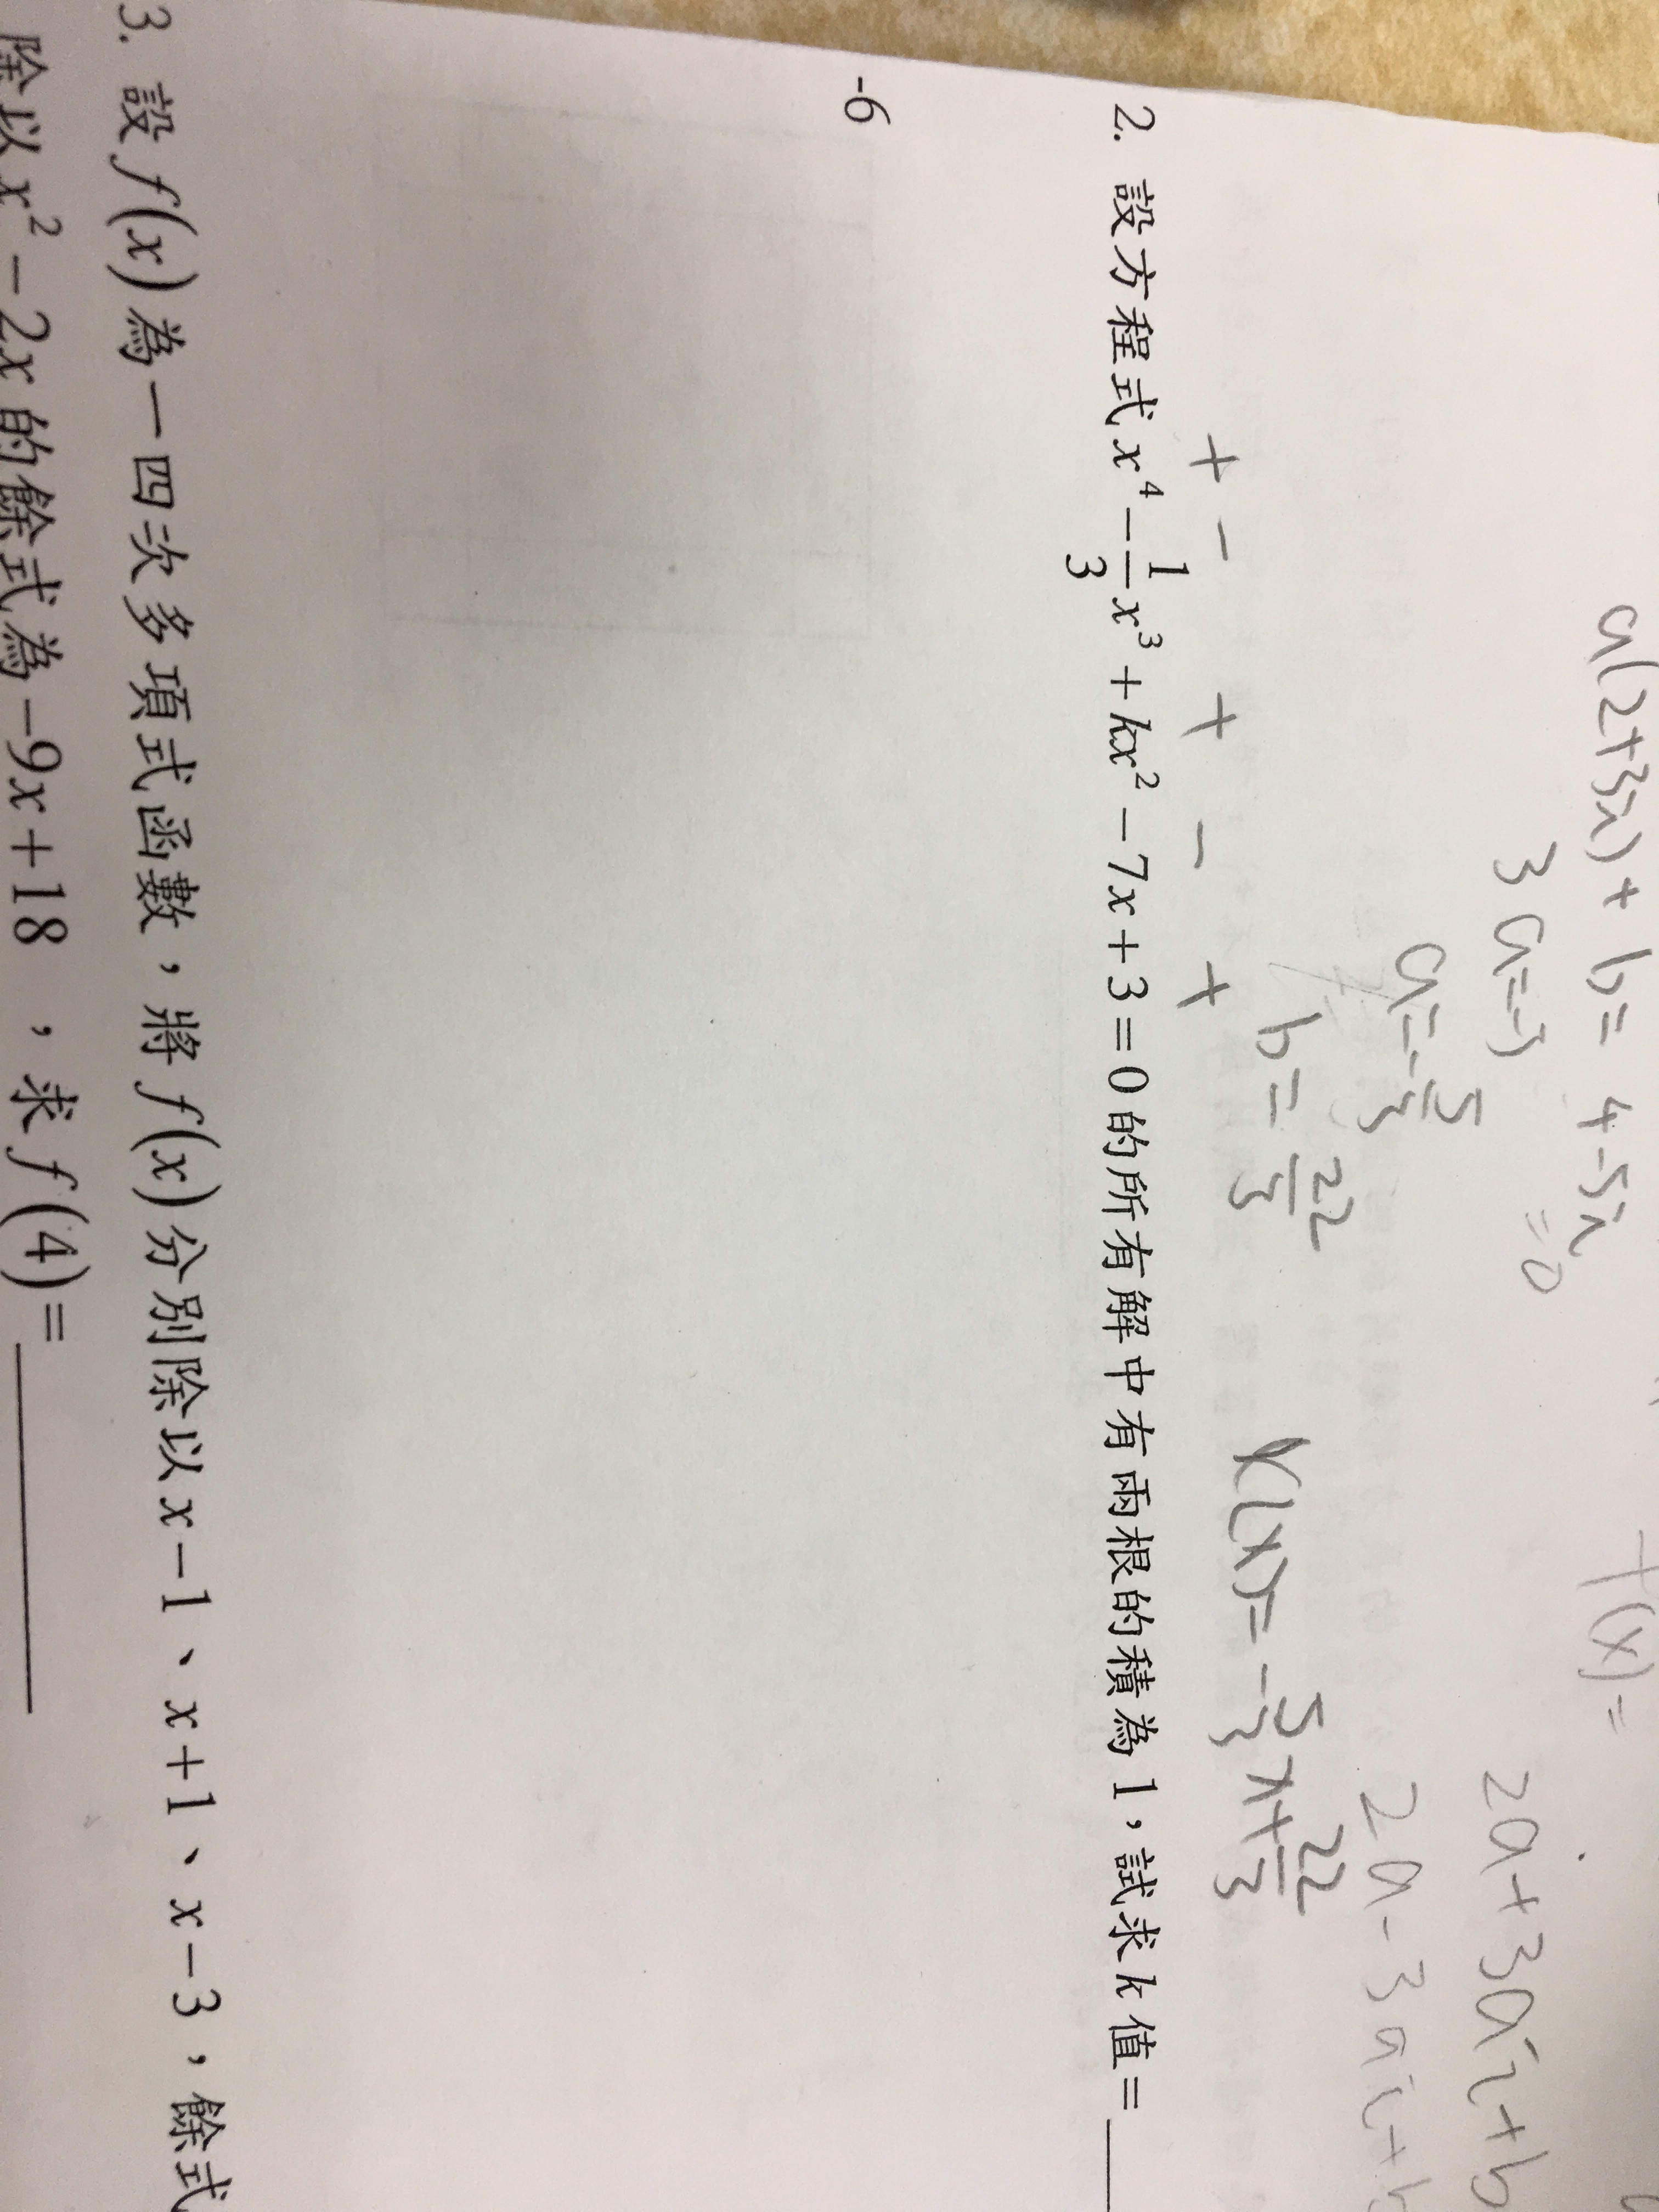 a(2+3i)+b=4-5i
=0
f(x)=
3a=-5
2a+3ai+b
a=-5/3
2a-3ai+b
b=22/3
r(x)=-5/3x+22/3
+ - + - +
2. 設方程式x⁴-1/3x³+kx²-7x+3=0的所有解中有兩根的積為1，試求k值=____
-6
3. 設f(x)為一四次多項式函數，將f(x)分別除以x-1、x+1、x-3，餘式
除以x²-2x的餘式為-9x+18，求f(4)=____